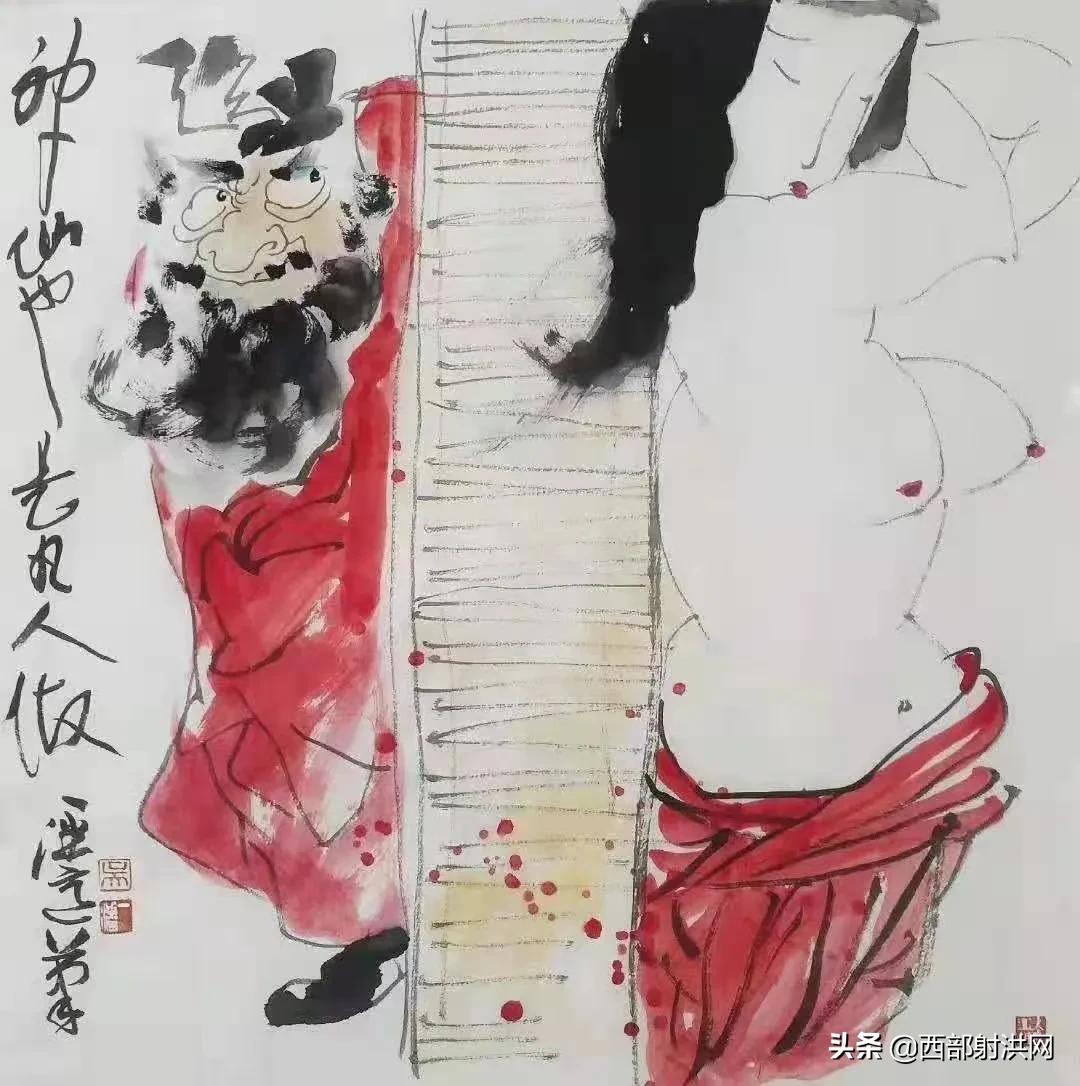 神仙也是凡人做
吴
头条 @西部射洪网